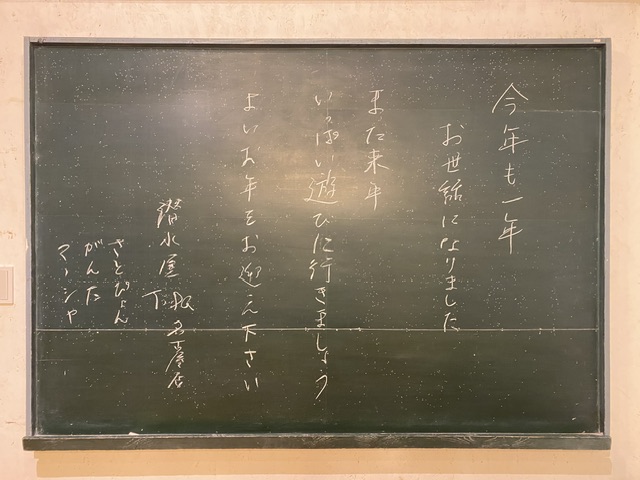 今年も一年
お世話になりました
また来年
いっぱい遊びに行きましょう
よいお年をお迎え下さい
潜水屋 下坂名古屋店
さとぴょん
がんた
マーシャ